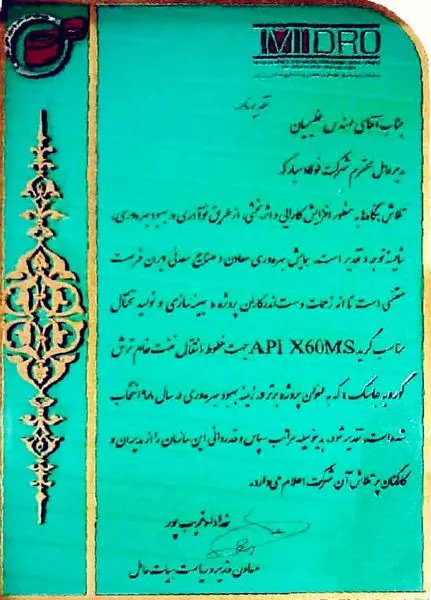 IMIDRO
تقدیرنامه
جناب آقای مهندس عظیمیان
مدیرعامل محترم شرکت فولاد مبارکه
تلاش بنگاه‌ها به منظور افزایش کارایی و اثربخشی، از طریق نوآوری در بهبود بهره‌وری،
شایسته توجه و تقدیر است. همایش بهره‌وری معادن و صنایع معدنی ایران فرصت
مغتنمی است تا از زحمات دست‌اندرکاران پروژه « بهینه‌سازی و تولید تختال
مناسب گرید API X60MS جهت خطوط انتقال نفت خام ترش
گوره به جاسک » که به عنوان پروژه برتر در زمینه بهبود بهره‌وری در سال ۹۸ انتخاب
شده است، تقدیر شود. بدینوسیله مراتب سپاس و قدردانی این سازمان را از مدیران و
کارکنان پر تلاش آن شرکت اعلام می‌دارد.
خداداد غریب پور
معاون وزیر و ریاست هیات عامل